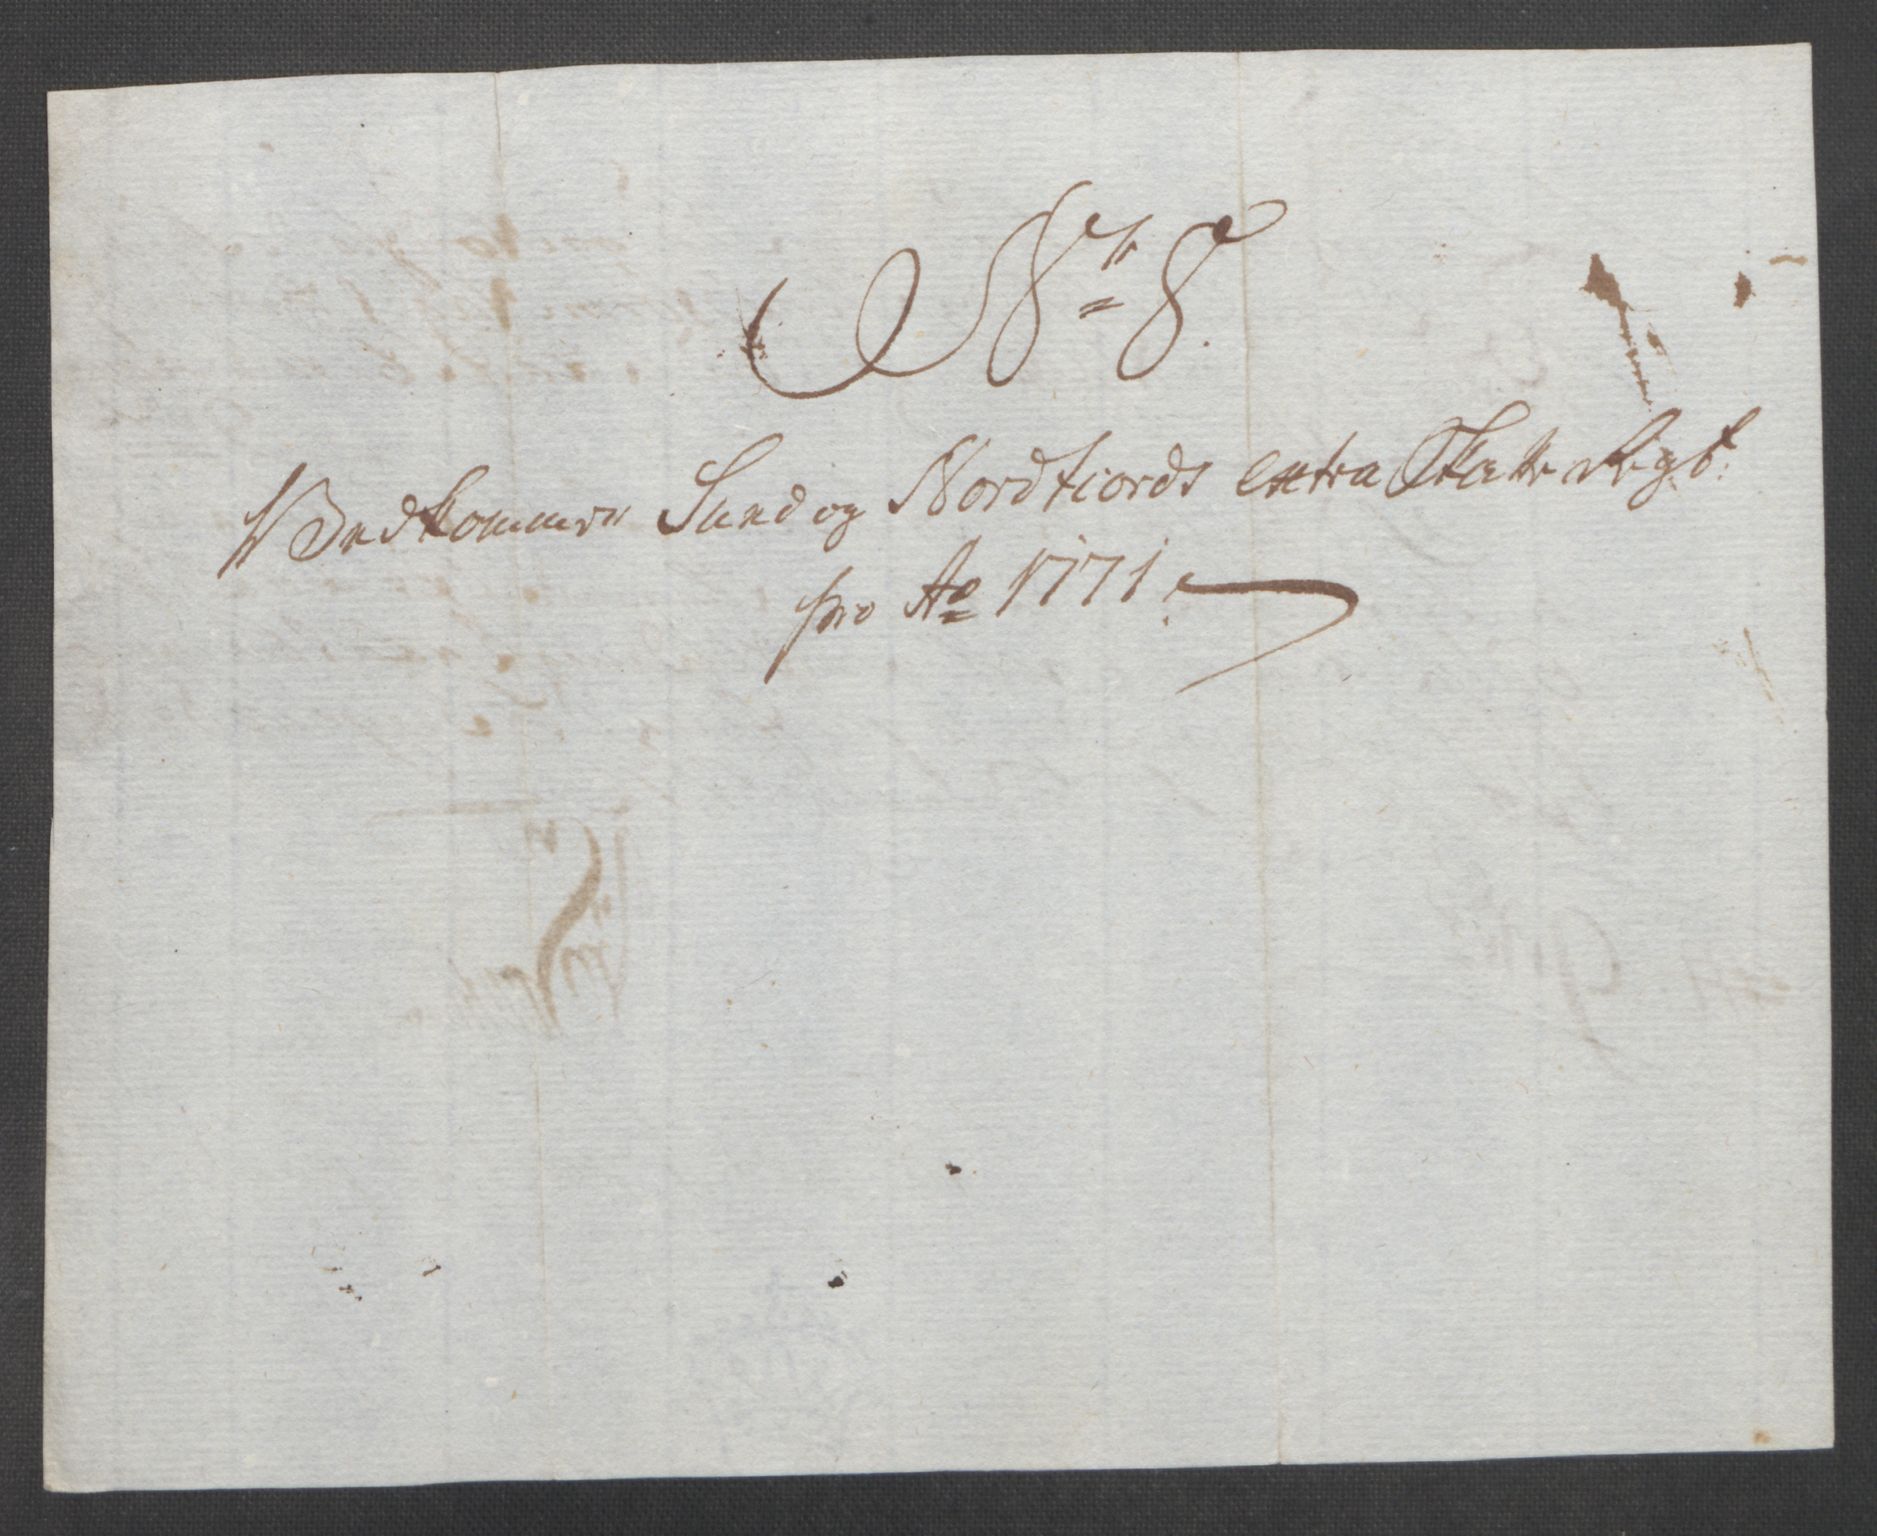 No 8.
Vedkommer Sund og Nordfiords extra Skatte Regsk:
pro Ao 1771.